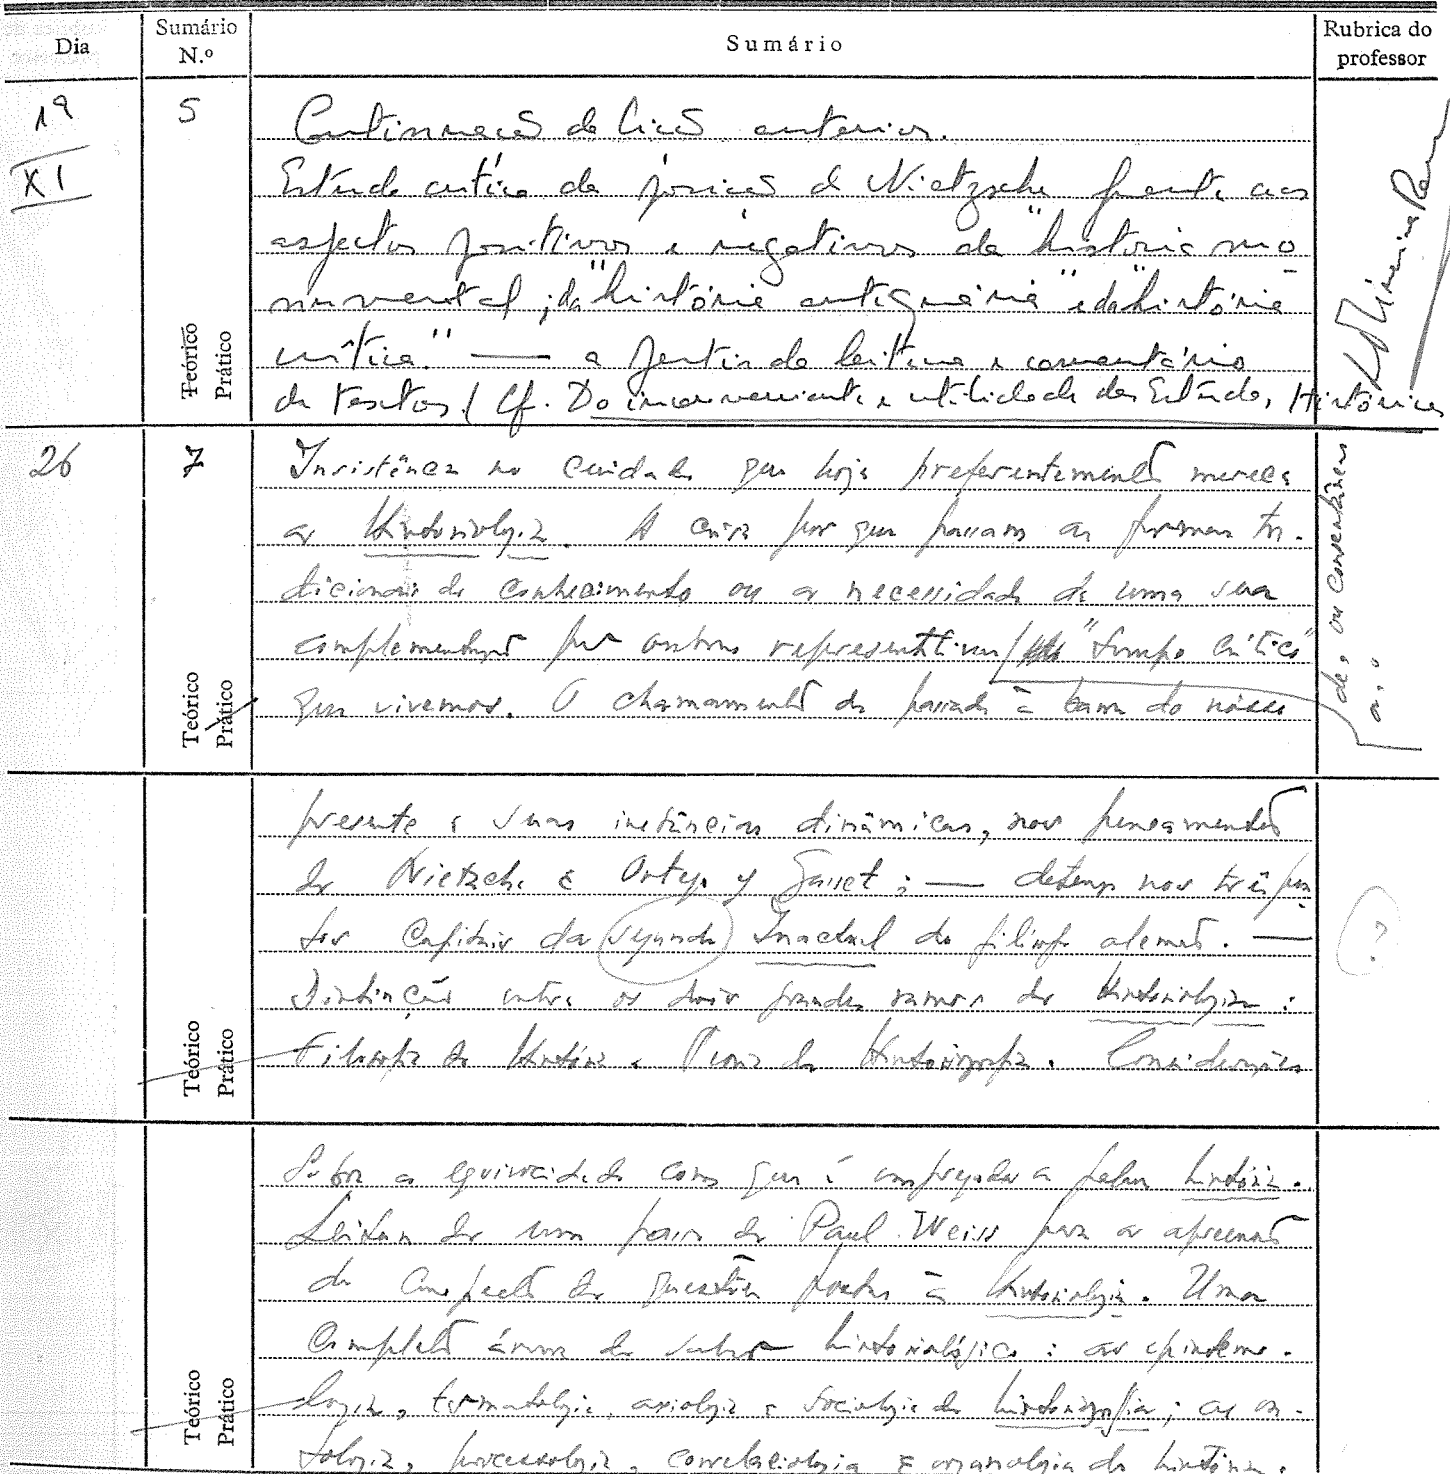 Dia
Sumário
N.º
Sumário
Rubrica do
professor
19
XI
5
Teórico
Prático
Continuação da lição anterior.
Estudo crítico da posição de Nietzsche frente aos
aspectos positivos e negativos da "história mo-
numental; da "história antiquária" e da "história
crítica" — a partir da leitura e comentário
de textos / Cf. Do inconveniente e utilidade dos Estudos Históricos
26
7
Teórico
Prático
Insistência no cuidado que hoje preferentemente merece
a Historiologia. A crise por que passam as formas tra-
dicionais de conhecimento ou a necessidade de uma sua
complementação por outras representativas / "tempo crítico"
que vivemos. O chamamento do passado à barra do nosso
des ou consentâneas
presente e suas instâncias dinâmicas, nos pensamentos
de Nietzche e Ortega y Gasset; — detença nos três pon-
tos capitais da segunda Inactual do filósofo alemão. —
Distinção entre os dois grandes ramos da Historiologia:
Filosofia da História e Teoria da Historiografia. Considerações
?
Teórico
Prático
sobre a equivocidade com que é empregada a palavra história.
Leitura de um passo de Paul Weiss para a apreensão
do aspecto de questões postas à Historiologia. Uma
completa árvore do saber historiológico: a epistemo-
logia, axiologia e sociologia da historiografia; a on-
tologia, processologia, correlaciologia e organologia da história.
Teórico
Prático